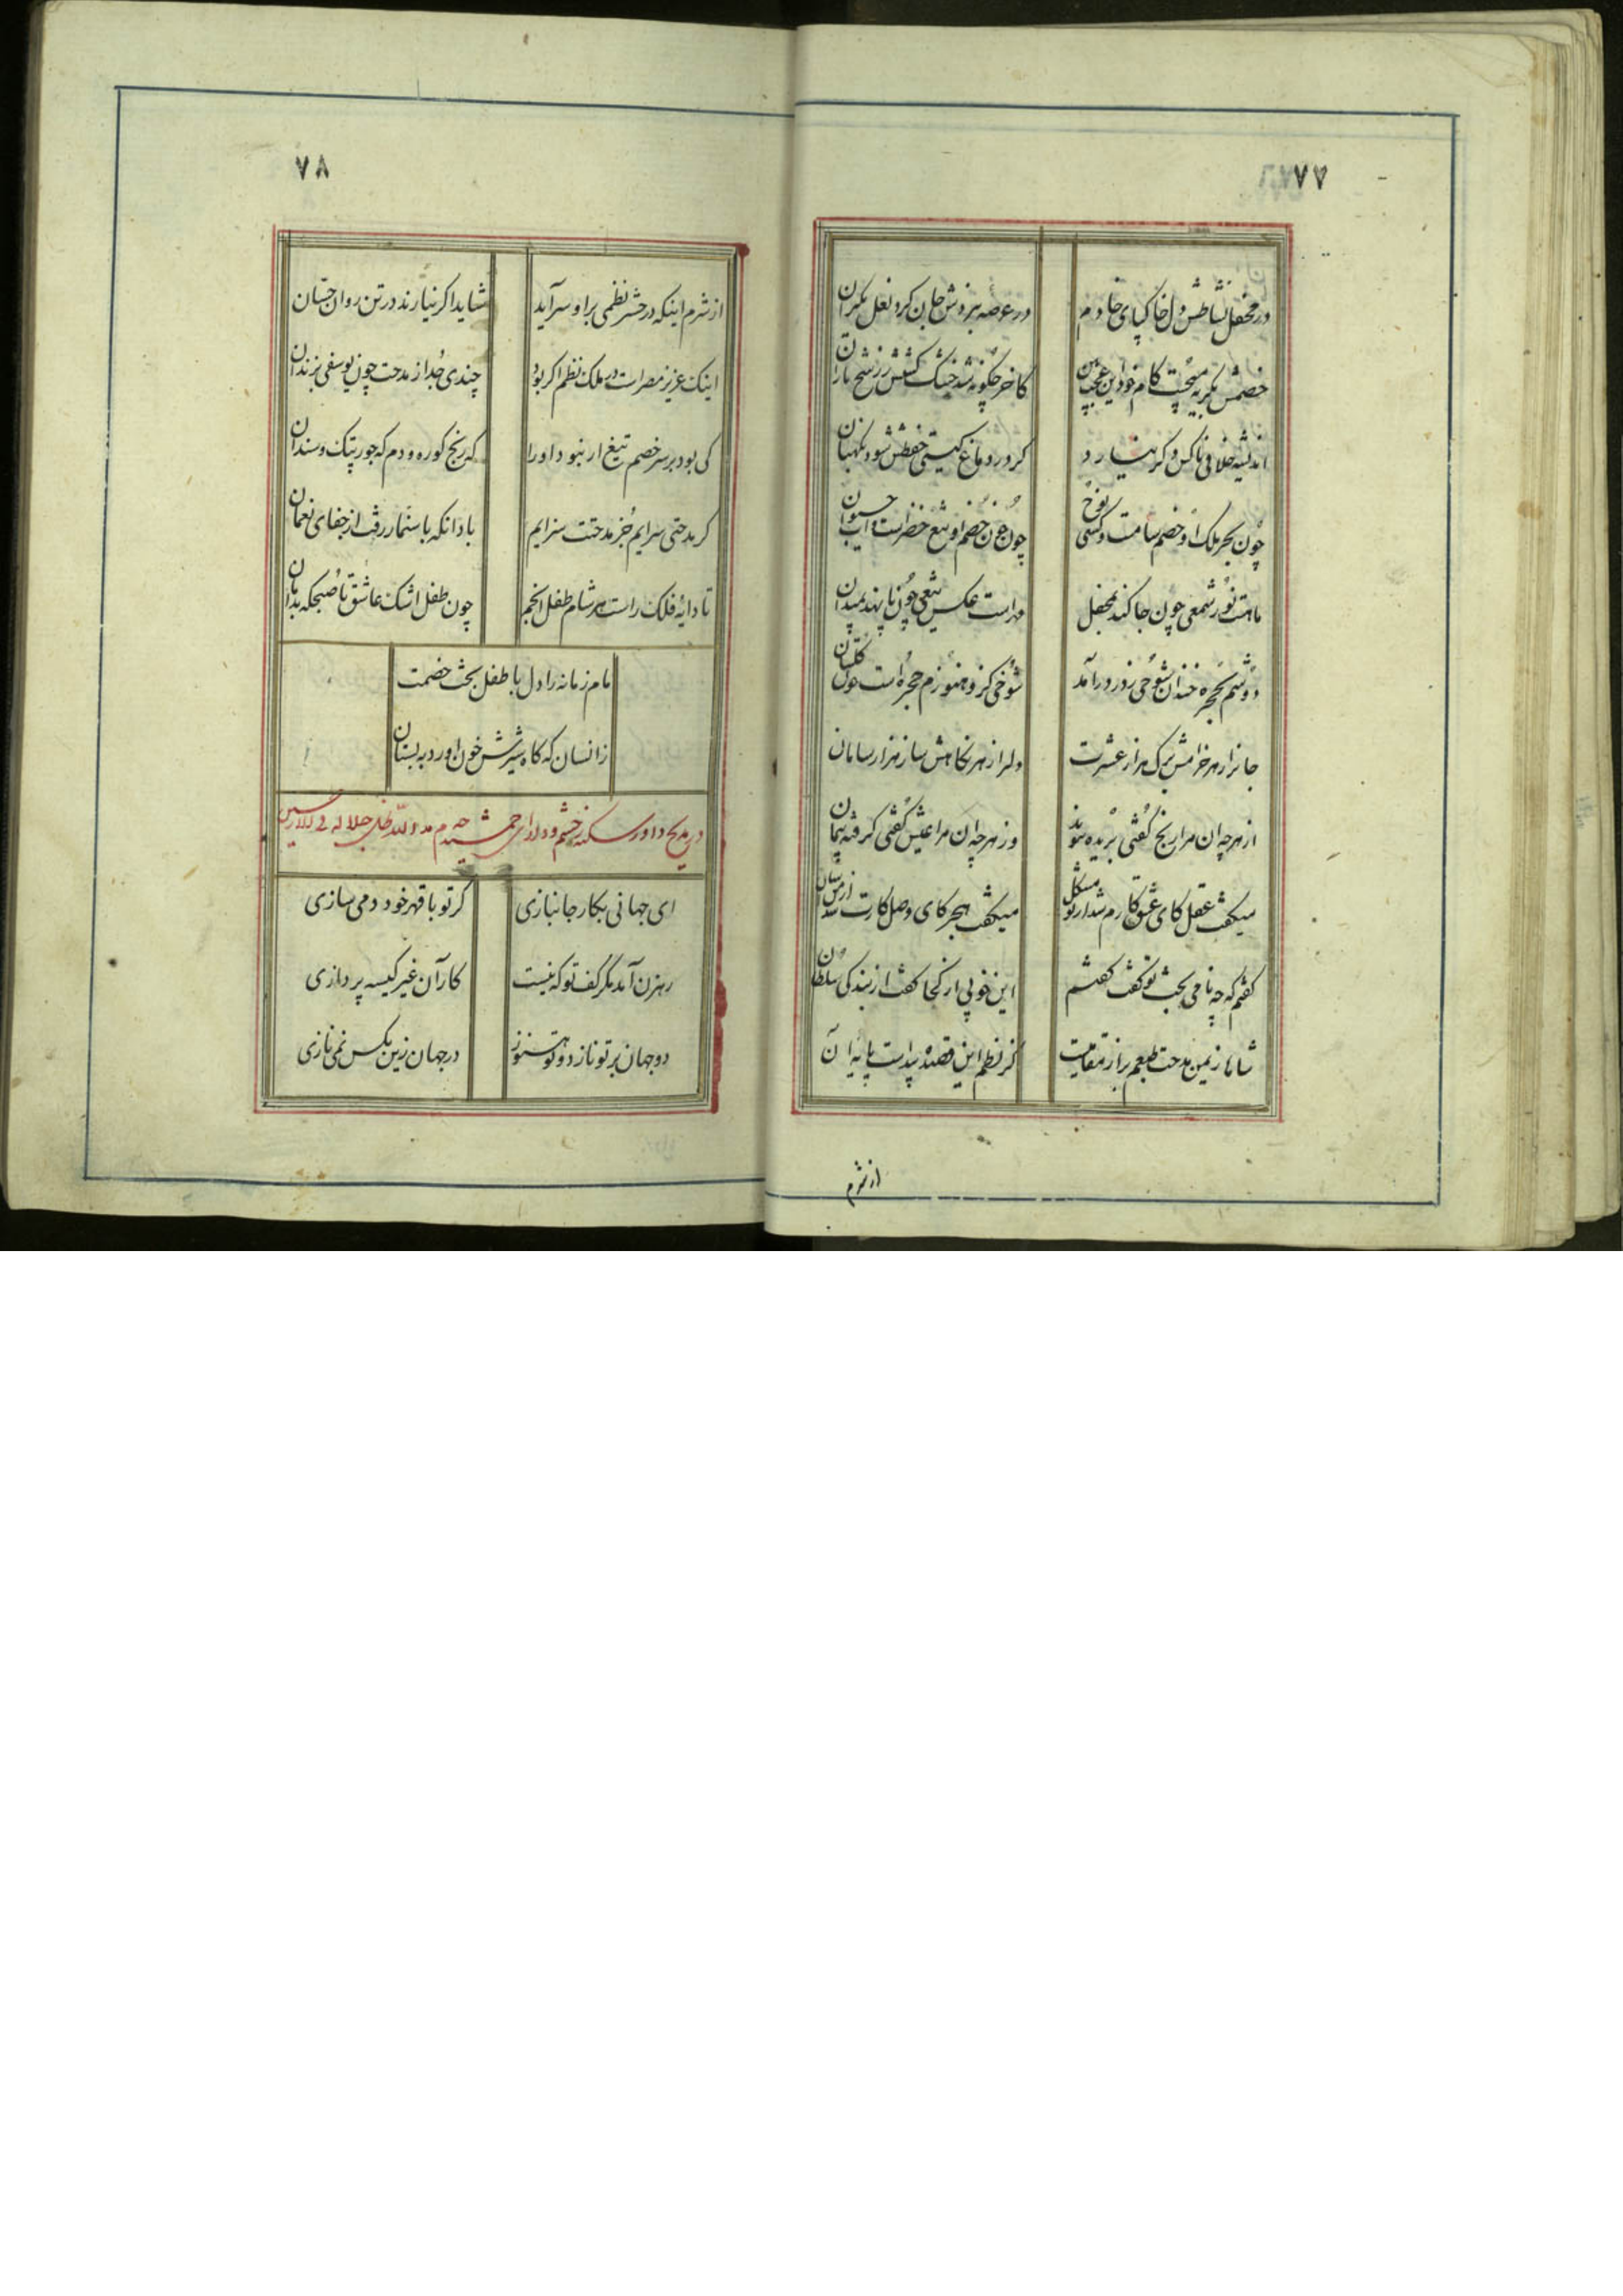 ۷۷
در محفل نشاطش دل خاکپای خادم
در عرصه نبردش جان کرد نعل یکران
خصمش بگریه میجست کام خود این عجب بین
کاخر چگونه شد خشک کشتش ز رشح باران
اندیشه خلافی ناکس دگر نیارد
کر در دماغ کیتی حفظش شود نکهبان
چون بحر ملک او خصم سامت و کشتی نوح
چون خون خصم او تیغ خضرست و آب حیوان
ماهت نور شمعی چون جا کند بمحفل
مهراست عکس تیغی چون پا نهد بمیدان
دوشم بحجره خندان شوخی ز در درآمد
شوخی کز و هنوزم حجره است چون گلستان
جانرا ز هر خرامش برک هزار عشرت
دلرا ز هر نکاهش ساز هزار سامان
از هر چه آن مرا رنج گفتی بریده پیوند
وز هر چه آن مرا عیش گفتی گرفته پیمان
میکفت عقل کای عشق کارم شد از تو مشکل
میکفت هجر کای وصل کارت شد از من آسان
کفتم که چه نامی بخت تو کفت کفتم
این خوبی از کجا کفت از بندکی سلطان
شاها ز یمن مدحت طبعم براز تقاییت
کز نظم این قصیده پیداست پایه آن
از شرم
۷۸
از شرم اینکه در حشر نظمی براو سرآید
شاید اکر نیارند در تن روان حسّان
اینک عزیز مصراست در ملک نظم اکر بود
چندی جُدا از مدحت چون یوسفی بزندان
کی بود بر سر خصم تیغ ار نبود داورا
که رنج کوره و دم که جور پتک و سندان
کر مدحتی سرایم جُز مدحتت سزایم
بادانکه با سنمّار رفت از جفای نعمان
تا دایۀ فلک راست هر شام طفل انجم
چون طفل اشک عاشق تا صُبحکه بدامان
مام زمانه را دل با طفل بخت خصمت
زانسان که کاه شیرش خون اورد به پستان
در مدیح داور سکندر حشم و دارای جمشید خدم مد الله ظل جلاله فی الارضین
ای جهانی بکار جانبازی
کر تو با قهر خود دمی سازی
رهزن آمد مکر کف تو که نیست
کار آن غیر کیسه پردازی
دو جهان بر تو نازد و تو هنوز
در جهان زین بکس نمی نازی